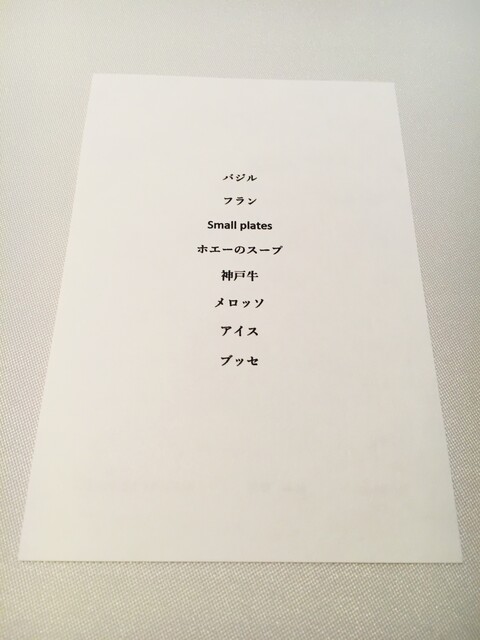 バジル
フラン
Small plates
ホエーのスープ
神戸牛
メロッソ
アイス
ブッセ